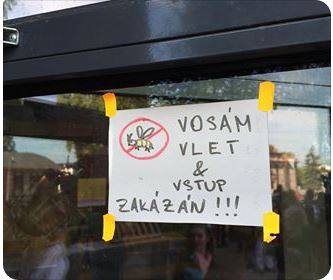 VOSÁM
VLET
&
VSTUP
ZAKÁZÁN !!!